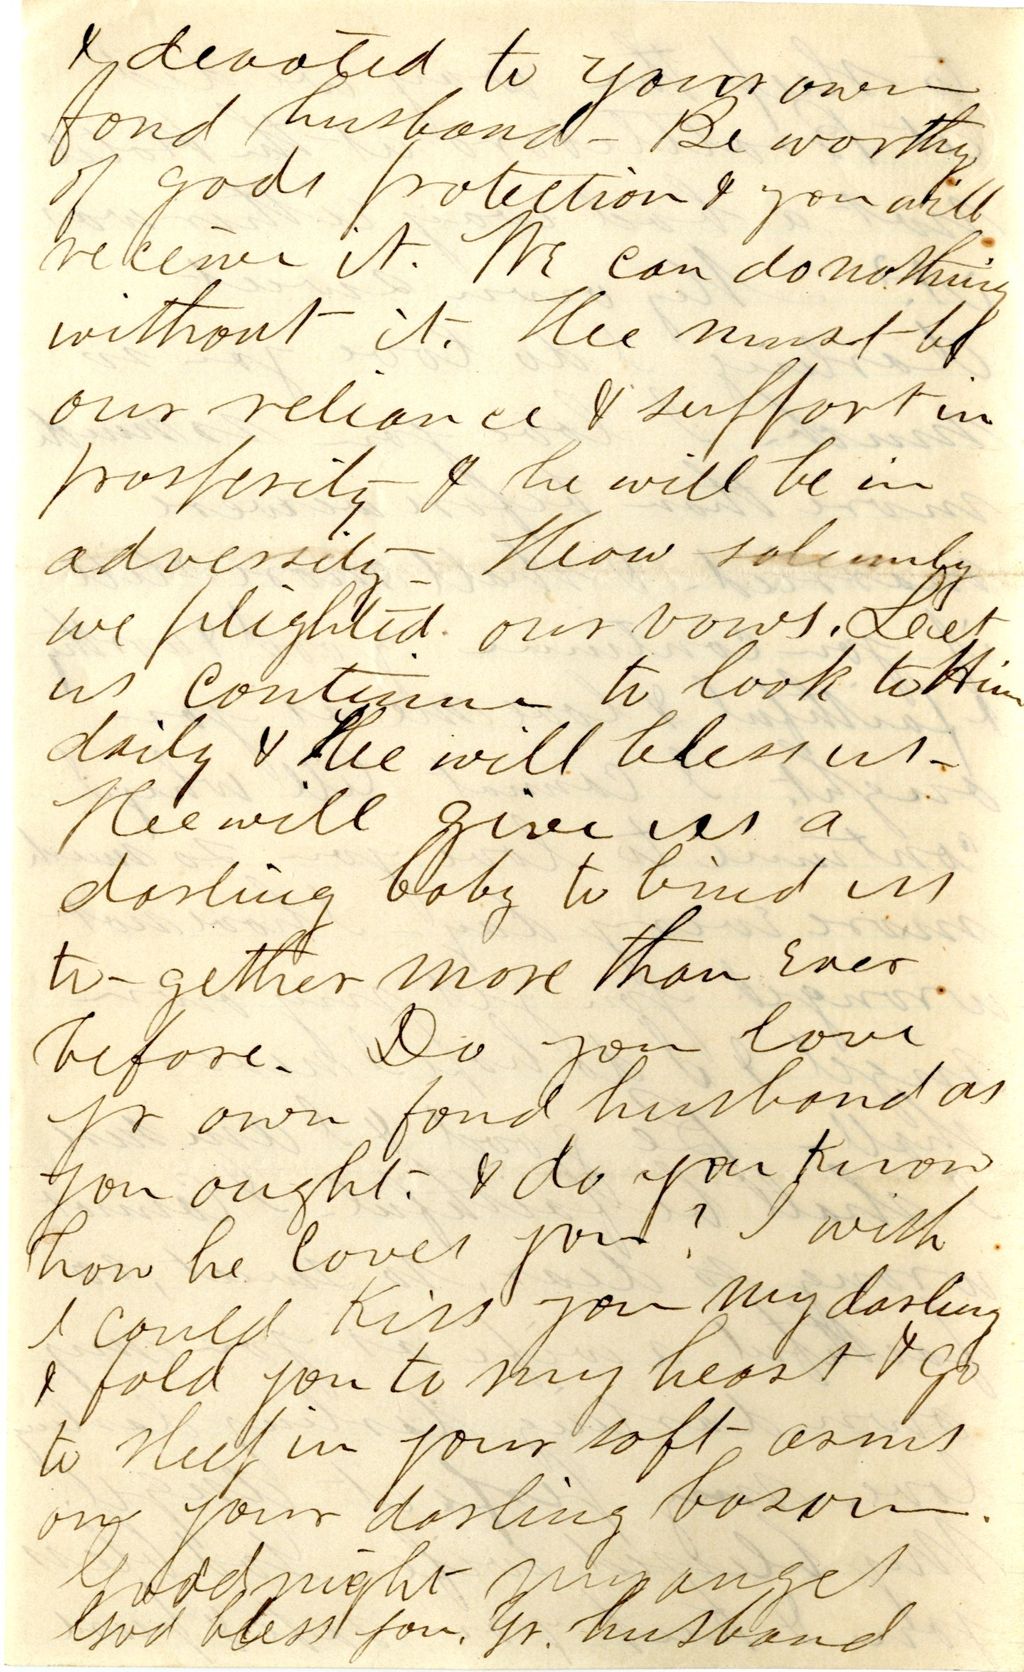 & devoted to your own
fond husband - Be worthy
of gods protection & you will
receive it. We can do nothing
without it. Hee must be
our reliance & support in
prosperity & he will be in
adversity - How solemnly
we plighted our vows. Let
us continue to look to Him
daily & Hee will bless us -
Hee will give us a
darling baby to bind us
to-gether more than ever
before. Do you love
yr own fond husband as
you ought. & do you Know
how he loves you? I wish
I could Kiss you my darling
& fold you to my heart & go
to sleep in your soft arms
on your darling bosom.
Good night my angel
God bless you. Yr. husband